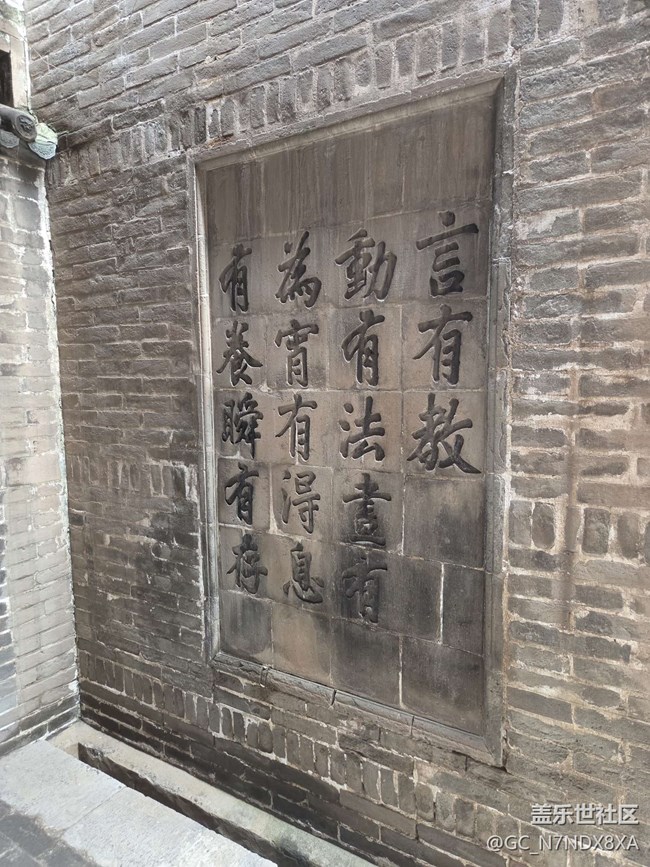 言有教
動有法晝有
為宵有得息
有養瞬有存
盖乐世社区
@GC_N7NDX8XA